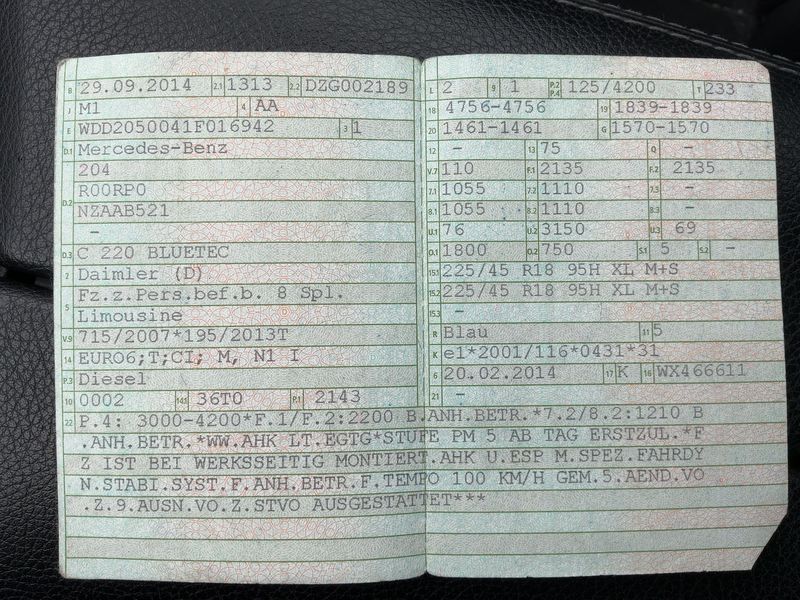 B 29.09.2014 2.1 1313 2.2 DZG002189
J M1 4 AA
E WDD2050041F016942 3 1
D.1 Mercedes-Benz
204
D.2 R00RP0
NZAAB521
-
D.3 C 220 BLUETEC
2 Daimler (D)
5 Fz.z.Pers.bef.b. 8 Spl.
Limousine
V.9 715/2007*195/2013T
14 EURO6;T;CI; M, N1 I
P.3 Diesel
10 0002 14.1 36T0 P.1 2143
L 2 9 1 P.2 P.4 125/4200 T 233
18 4756-4756 19 1839-1839
20 1461-1461 G 1570-1570
12 - 13 75 Q -
V.7 110 F.1 2135 F.2 2135
7.1 1055 7.2 1110 7.3 -
8.1 1055 8.2 1110 8.3 -
U.1 76 U.2 3150 U.3 69
O.1 1800 O.2 750 S.1 5 S.2 -
15.1 225/45 R18 95H XL M+S
15.2 225/45 R18 95H XL M+S
15.3 -
R Blau 11 5
K e1*2001/116*0431*31
6 20.02.2014 17 K 16 WX466611
21 -
22 P.4: 3000-4200*F.1/F.2:2200 B.ANH.BETR.*7.2/8.2:1210 B
.ANH.BETR.*WW.AHK LT.EGTG*STUFE PM 5 AB TAG ERSTZUL.*F
Z IST BEI WERKSSEITIG MONTIERT.AHK U.ESP M.SPEZ.FAHRDY
N.STABI.SYST.F.ANH.BETR.F.TEMPO 100 KM/H GEM.5.AEND.VO
.Z.9.AUSN.VO.Z.STVO AUSGESTATTET***